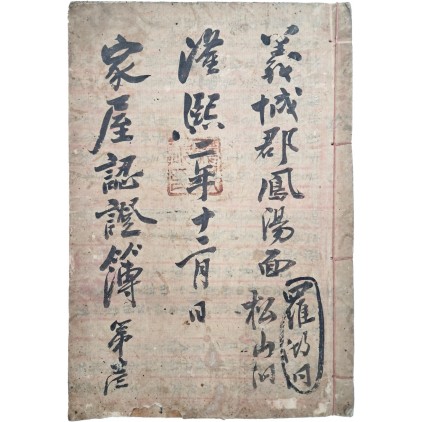 義城郡鳳陽面松山洞
羅
隆熙二年十二月 日
家屋認證簿 第